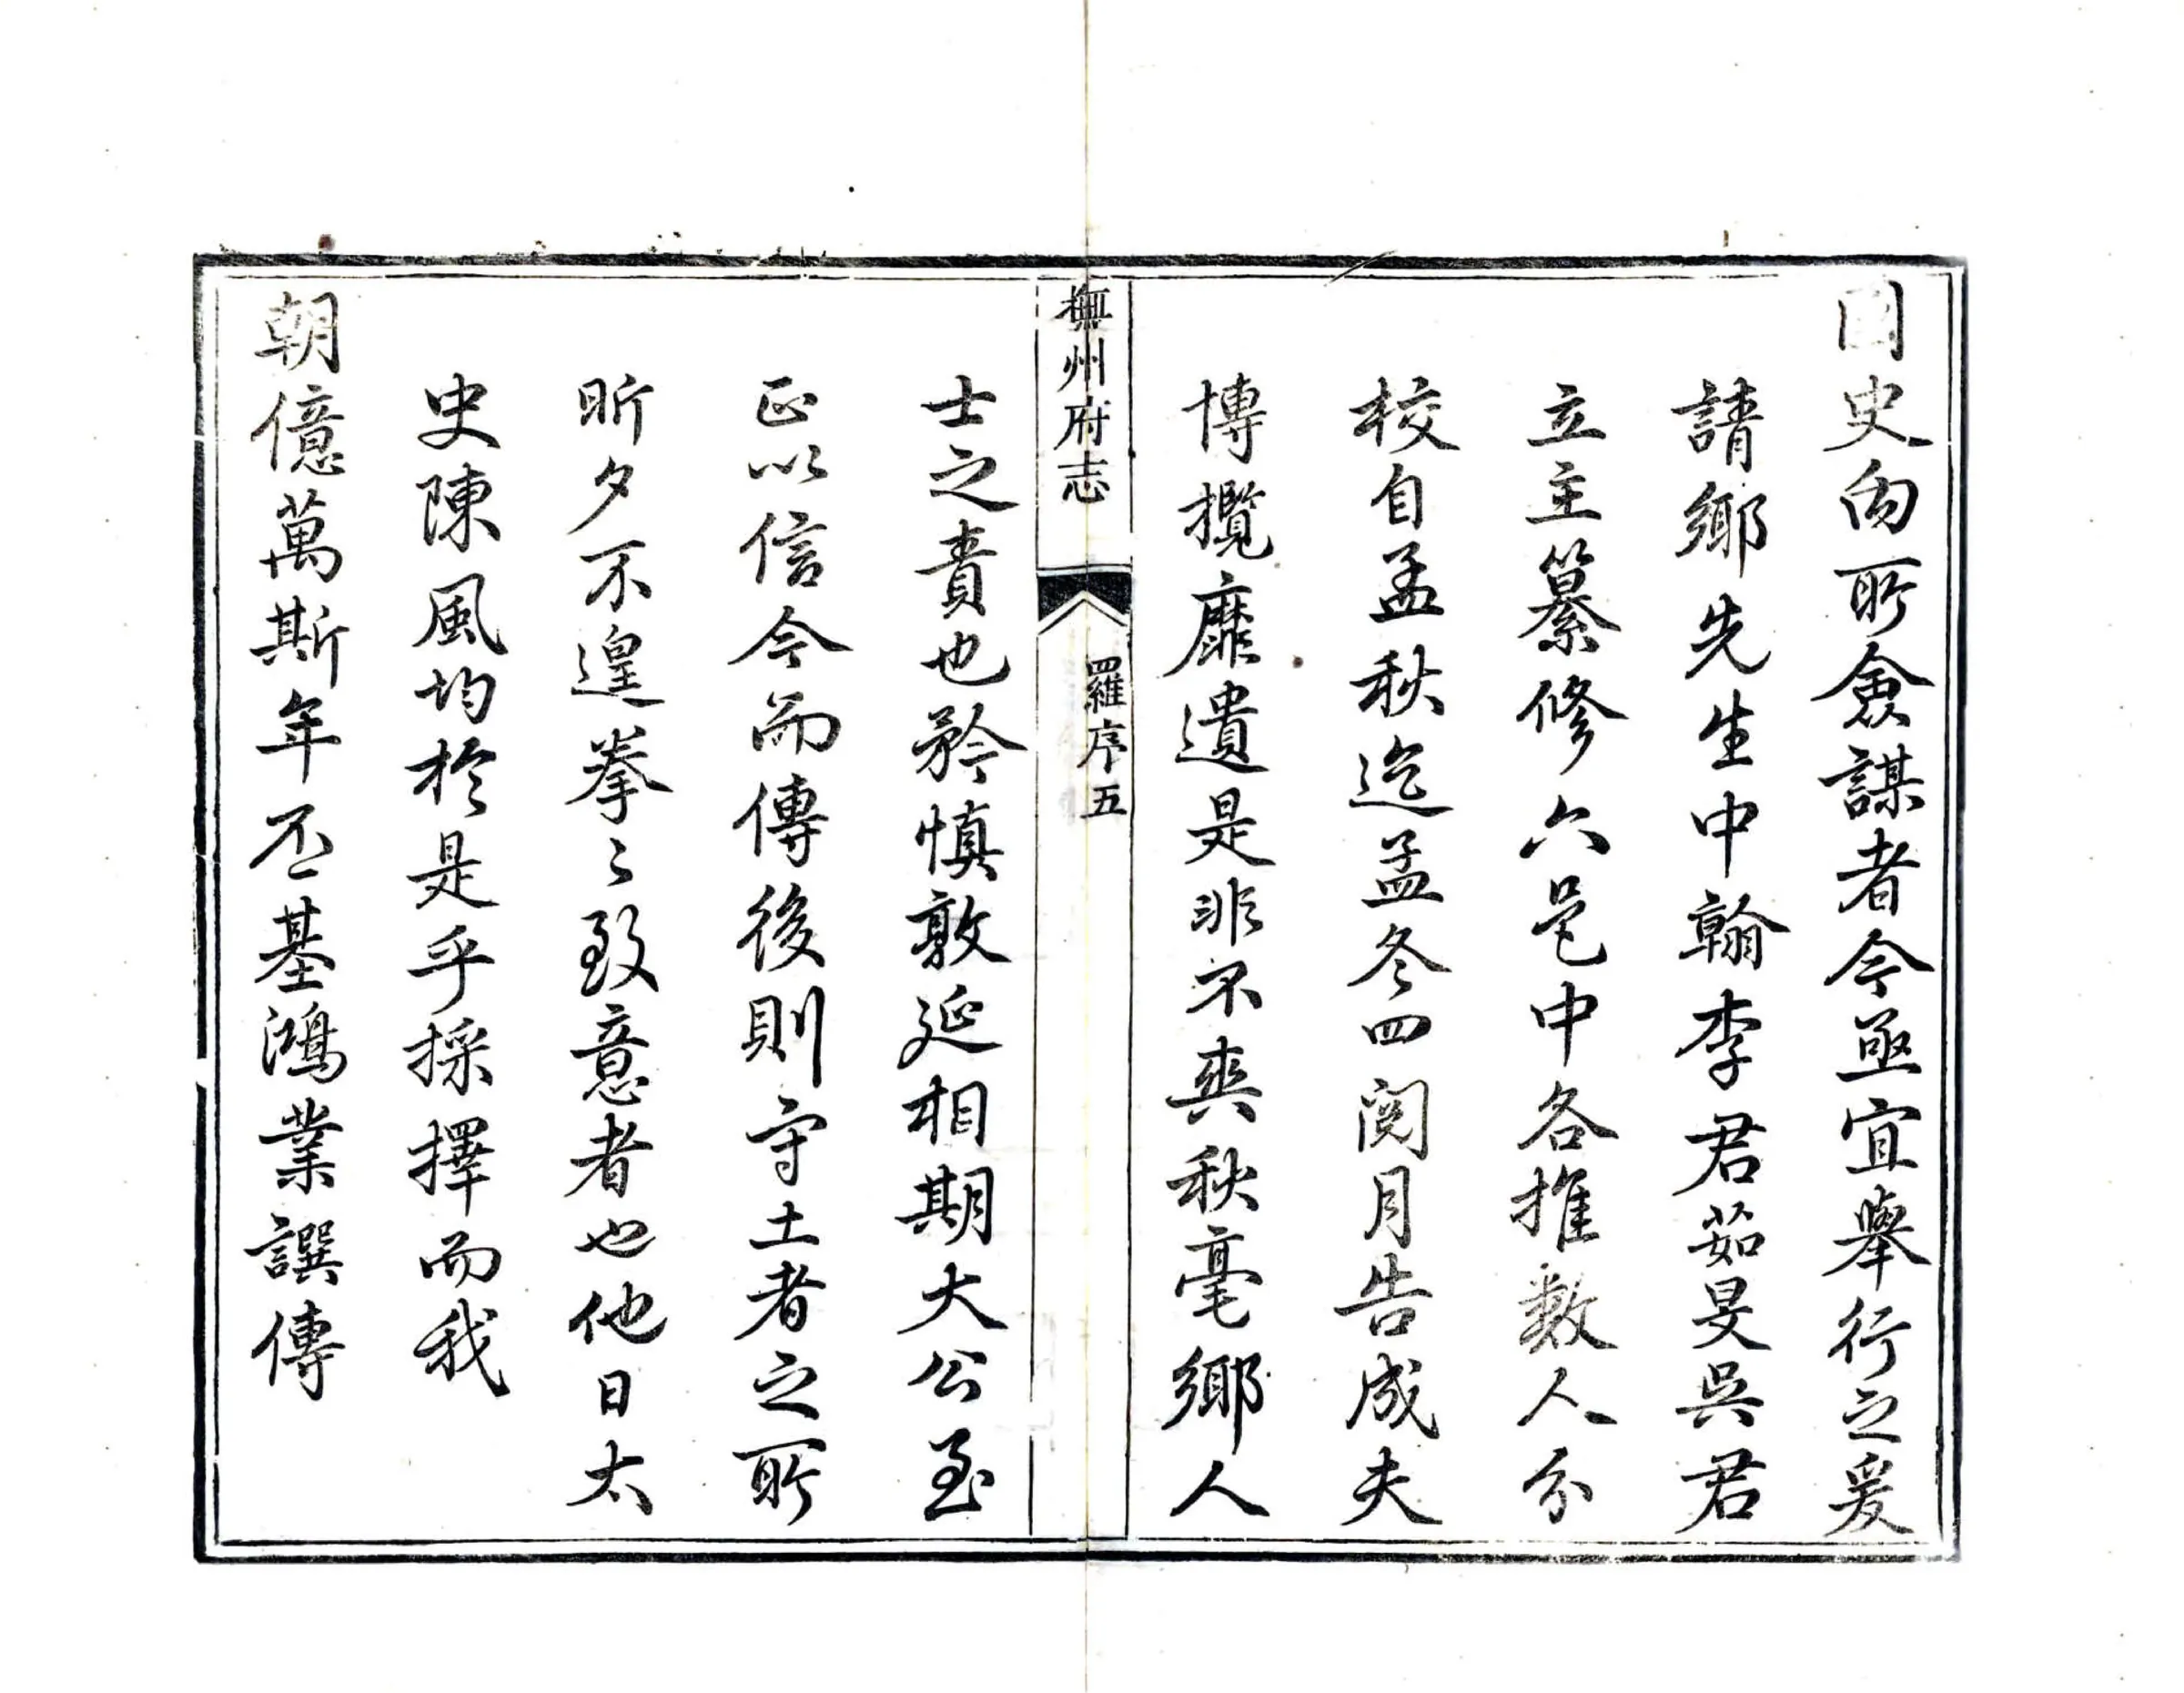 國史向所僉謀者今亟宜舉行之爰
請鄉先生中翰李君茹旻吳君
立主纂修六邑中各推數人分
校自孟秋迄孟冬四閱月告成夫
博攬靡遺是非不爽秋毫鄉人
撫州府志 羅序 五
士之責也矜慎敦延相期大公至
正以信今而傳後則守土者之所
昕夕不遑拳〻致意者也他日太
史陳風均於是乎採擇而我
朝億萬斯年丕基鴻業譔傳